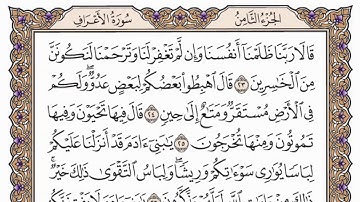 سُورَةُ الأَعْرَافِ الجُزْءُ الثَّامِنُ
قَالَا رَبَّنَا ظَلَمْنَا أَنفُسَنَا وَإِن لَّمْ تَغْفِرْ لَنَا وَتَرْحَمْنَا لَنَكُونَنَّ
مِنَ الْخَاسِرِينَ ٢٣ قَالَ اهْبِطُوا بَعْضُكُمْ لِبَعْضٍ عَدُوٌّ وَلَكُمْ
فِي الْأَرْضِ مُسْتَقَرٌّ وَمَتَاعٌ إِلَىٰ حِينٍ ٢٤ قَالَ فِيهَا تَحْيَوْنَ وَفِيهَا
تَمُوتُونَ وَمِنْهَا تُخْرَجُونَ ٢٥ يَابَنِي آدَمَ قَدْ أَنزَلْنَا عَلَيْكُمْ
لِبَاسًا يُوَارِي سَوْآتِكُمْ وَرِيشًا وَلِبَاسُ التَّقْوَىٰ ذَٰلِكَ خَيْرٌ